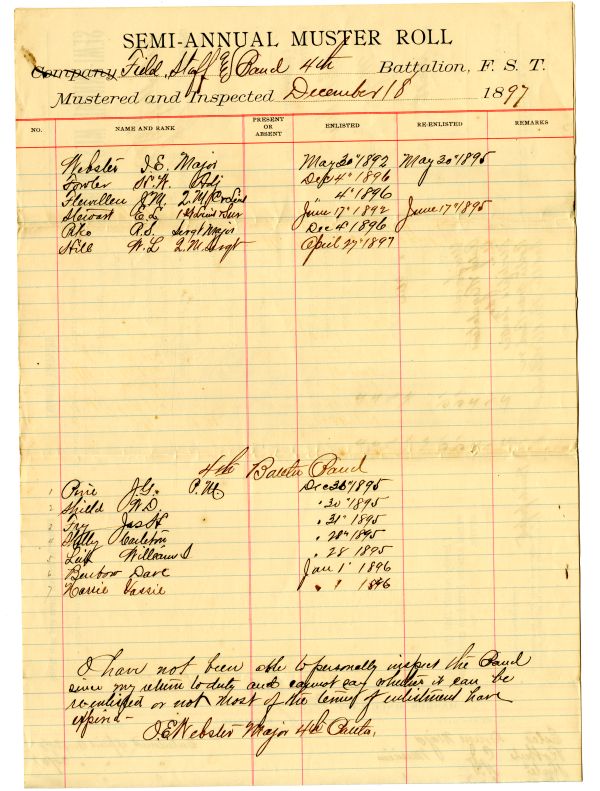 SEMI-ANNUAL MUSTER ROLL
Company Field, Staff & Band 4th Battalion, F. S. T.
Mustered and Inspected December 18 1897
NO. NAME AND RANK PRESENT OR ABSENT ENLISTED RE-ENLISTED REMARKS
Webster J. E. Major May 20" 1892 May 20" 1895
Fowler N. W. Adj Dec 4" 1896
Flewellen E M. Q. M. " 4" 1896
Stewart E L 1st & Sur June 17" 1892 June 17" 1895
R. S. Sergt Major Dec 4" 1896
Hill W. L Q. M. Sergt April 27" 1897
4th Battn Band
1 Pine J. G. P. M. Dec 1895
2 Shield W D " 30" 1895
3 Jas H " 31" 1895
4 Carleton " 28" 1895
5 William S " 28 1895
6 Benbow Dave Jan 1" 1896
7 Vassie " " 1896
I have not been able to personally inspect the Band
since my return to duty and cannot say whether it can be
reenlisted or not most of the terms of enlistment have
expired-
J. E. Webster Major 4th Battn.